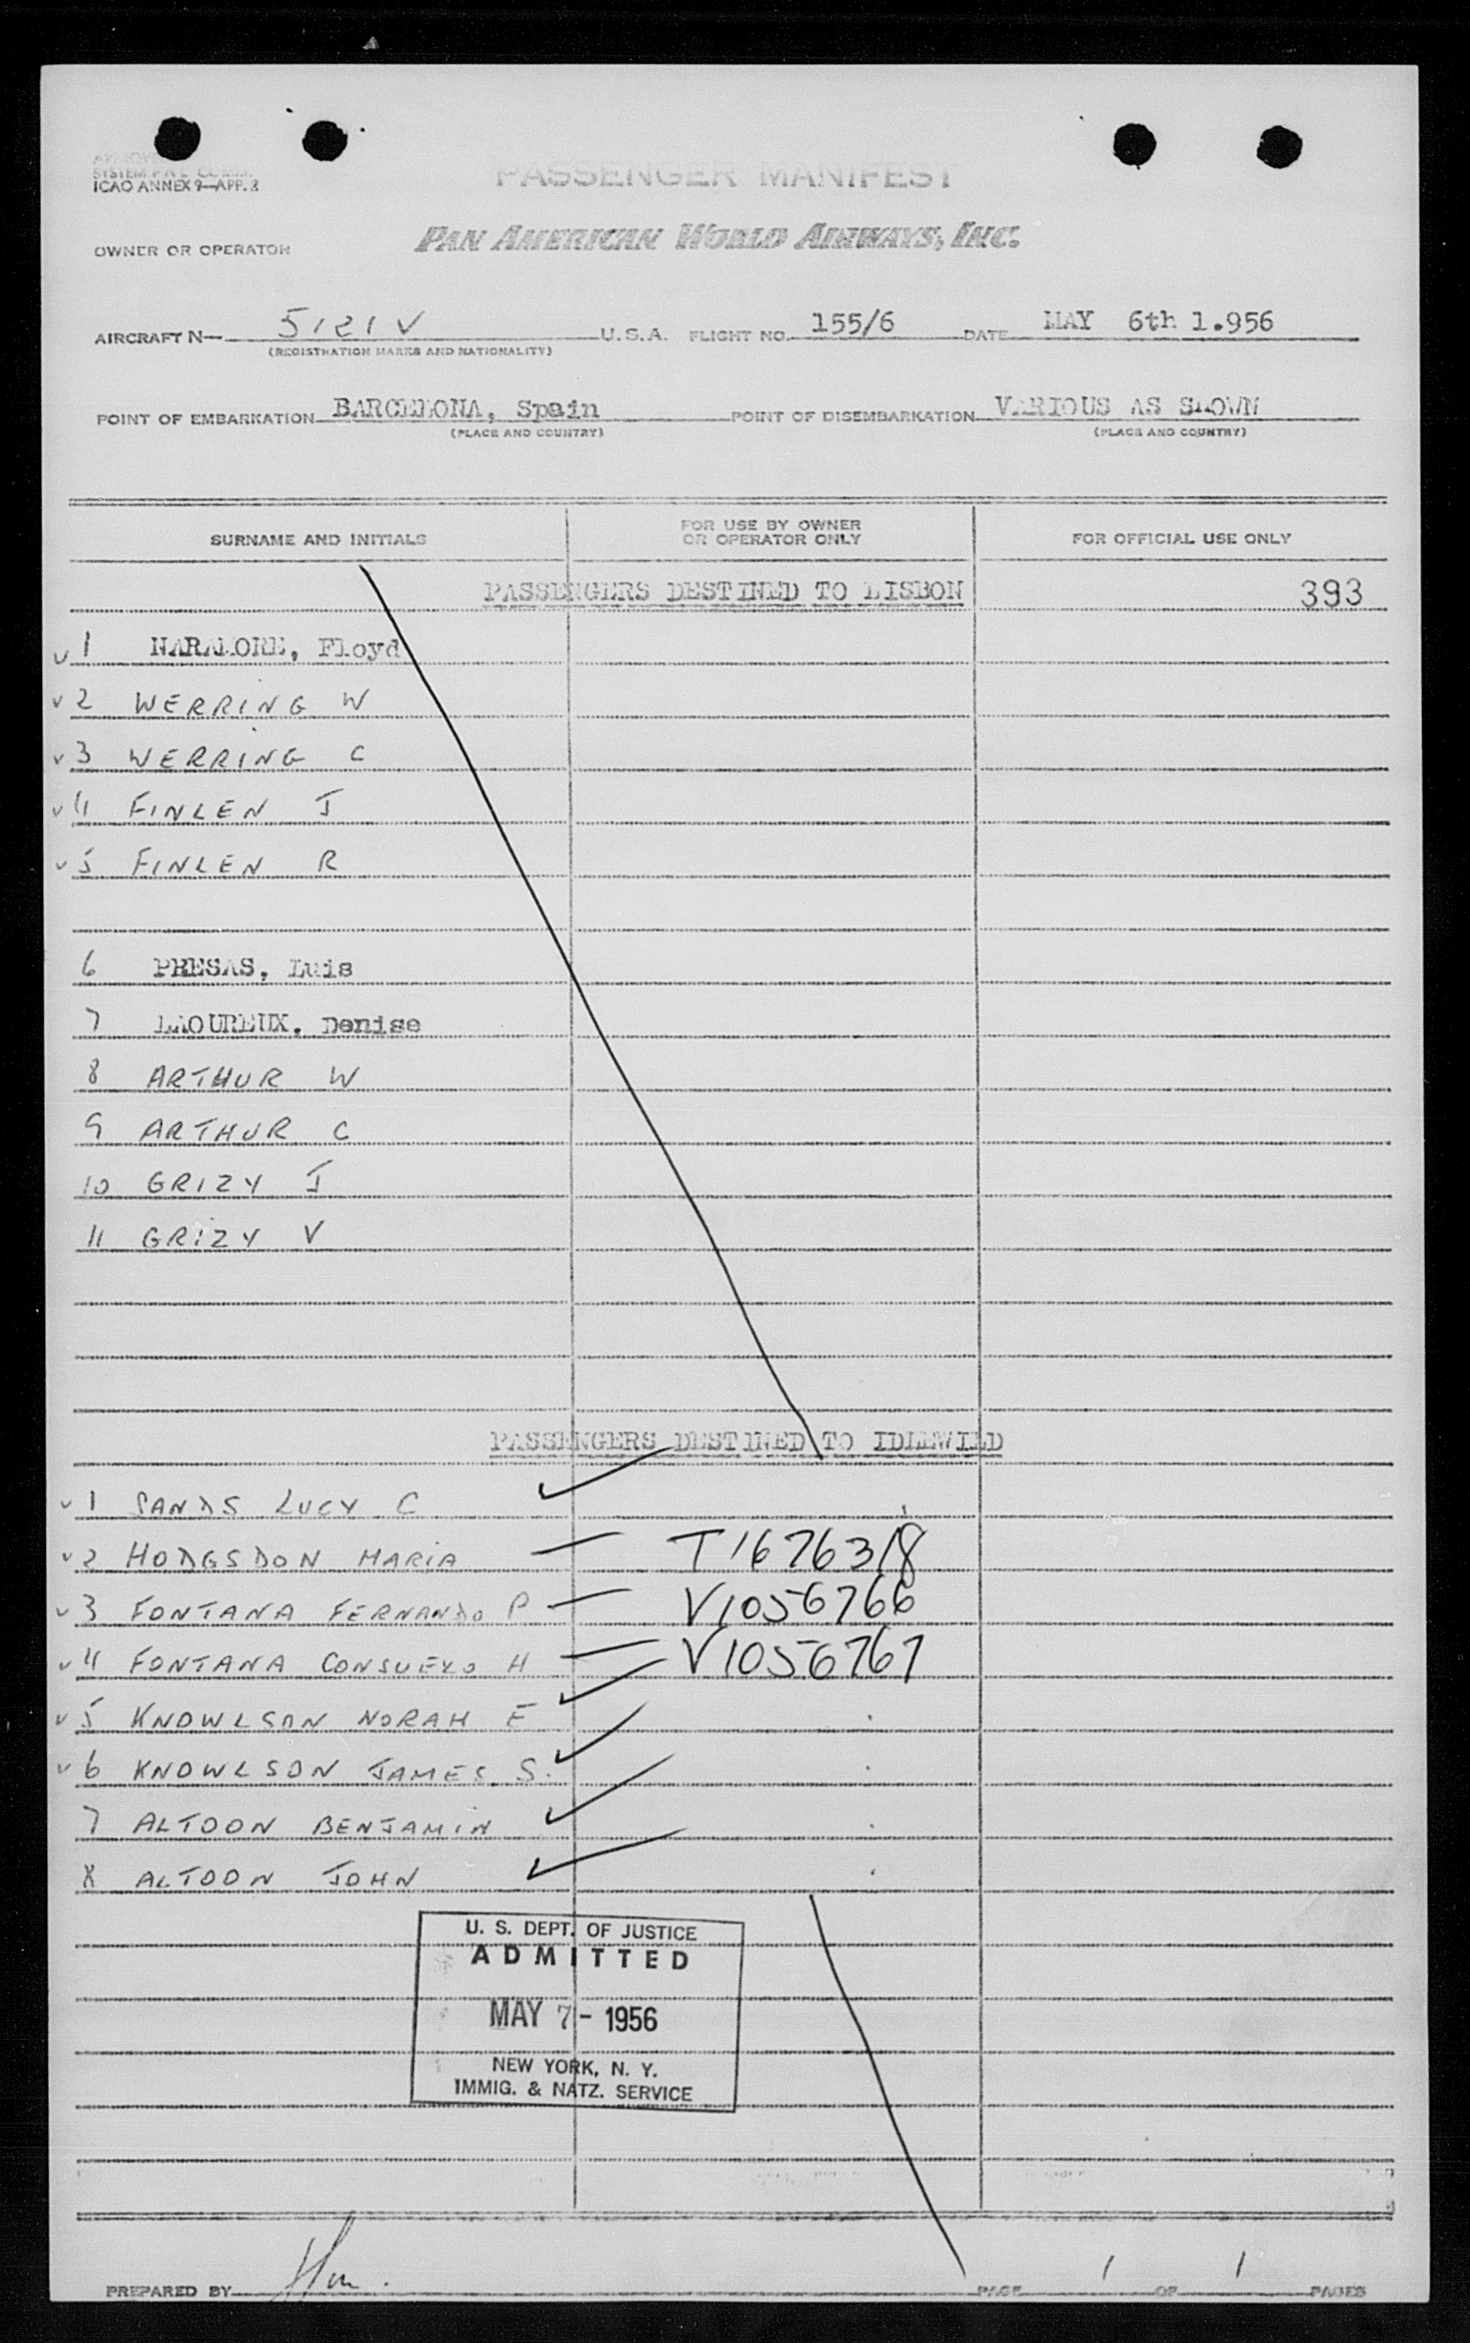 SYSTEM
ICAO ANNEX 9—APP. 3
PASSENGER MANIFEST
OWNER OR OPERATOR PAN AMERICAN WORLD AIRWAYS, INC.
AIRCRAFT N— 5121V U.S.A. FLIGHT NO. 155/6 DATE MAY 6th 1.956
(REGISTRATION MARKS AND NATIONALITY)
POINT OF EMBARKATION BARCELONA, Spain POINT OF DISEMBARKATION VARIOUS AS SHOWN
(PLACE AND COUNTRY) (PLACE AND COUNTRY)
SURNAME AND INITIALS FOR USE BY OWNER OR OPERATOR ONLY FOR OFFICIAL USE ONLY
PASSENGERS DESTINED TO LISBON 393
v 1 NARAMORE, Floyd
v 2 WERRING W
v 3 WERRING C
v 4 FINLEN J
v 5 FINLEN R
6 PRESAS, Luis
7 LAOUREUX, Denise
8 ARTHUR W
9 ARTHUR C
10 GRIZY J
11 GRIZY V
PASSENGERS DESTINED TO IDLEWILD
v 1 SANDS LUCY C
v 2 HODGSDON MARIA T1676318
v 3 FONTANA FERNANDO P V1056766
v 4 FONTANA CONSUELO H V1056767
v 5 KNOWLSON NORAH E
v 6 KNOWLSON JAMES S.
7 ALTOON BENJAMIN
8 ALTOON JOHN
U. S. DEPT. OF JUSTICE
ADMITTED
MAY 7 - 1956
NEW YORK, N. Y.
IMMIG. & NATZ. SERVICE
PREPARED BY PAGE 1 OF 1 PAGES